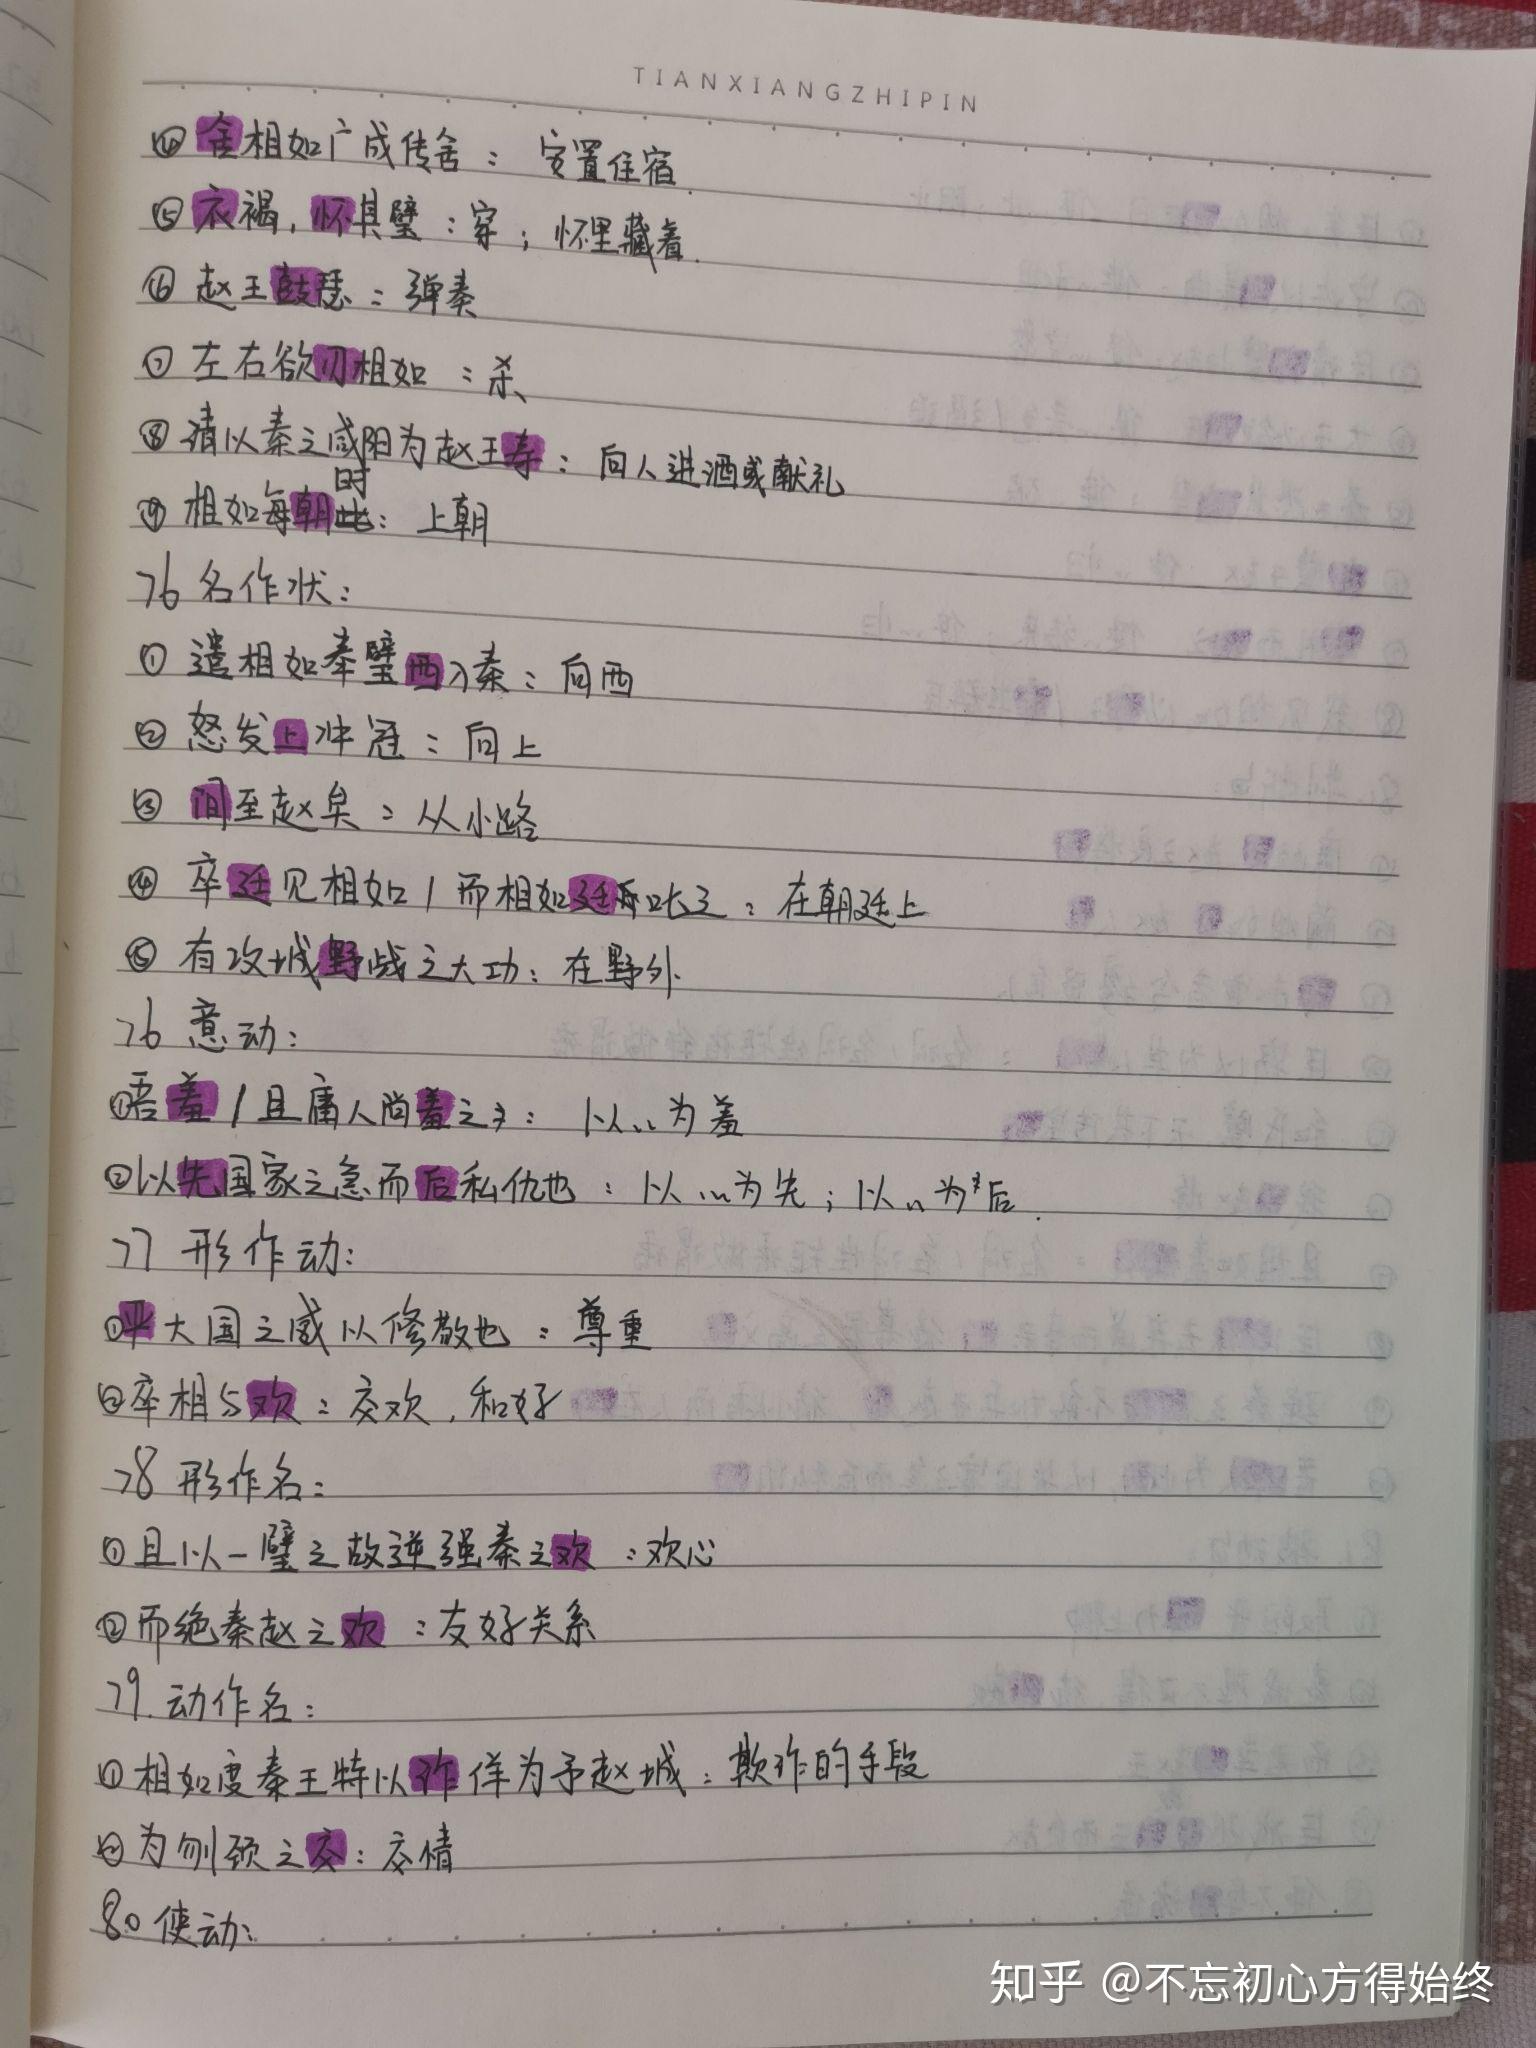 TIANXIANGZHIPIN
④ 舍相如广成传舍：安置住宿.
⑤ 衣褐，怀其璧：穿；怀里藏着.
⑥ 赵王鼓瑟：弹奏
⑦ 左右欲刃相如：杀
⑧ 请以秦之咸阳为赵王寿：向人进酒或献礼
⑨ 相如每朝时：上朝
76 名作状：
① 遣相如奉璧西入秦：向西
② 怒发上冲冠：向上
③ 间至赵矣：从小路
④ 卒廷见相如/而相如廷斥叱之：在朝廷上
⑤ 有攻城野战之大功：在野外
76 意动：
①吾羞/且庸人尚羞之：以…为羞
②以先国家之急而后私仇也：以…为先；以…为后.
77 形作动：
①严大国之威以修敬也：尊重
②卒相与欢：交欢，和好
78 形作名：
①且以一璧之故逆强秦之欢：欢心
②而绝秦赵之欢：友好关系
79. 动作名：
①相如度秦王特以诈佯为予赵城：欺诈的手段
②为刎颈之交：交情
80 使动：
知乎 @不忘初心方得始终